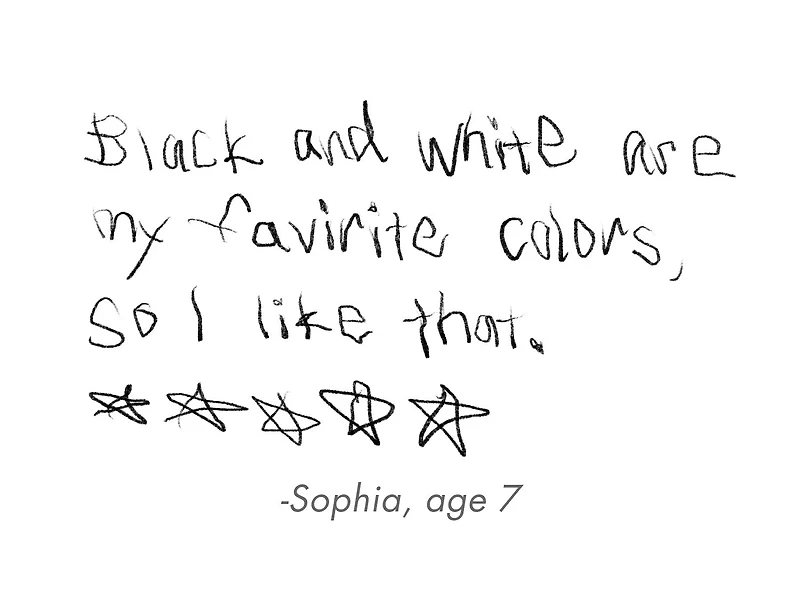 Black and white are
my favirite colors,
so I like that.
-Sophia, age 7